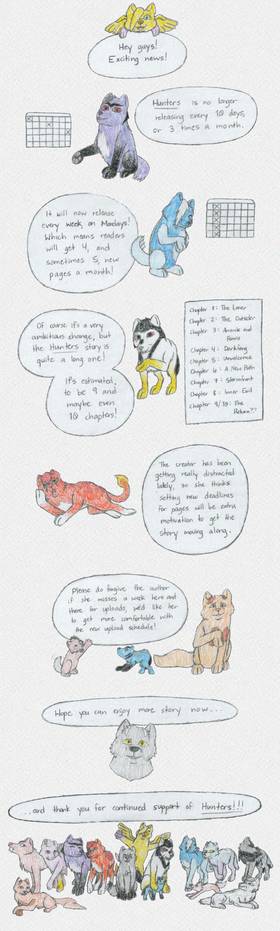 Hey guys!
Exciting news!
Hunters is no longer
releasing every 10 days,
or 3 times a month.
It will now release
every week, on Mondays!
Which means readers
will get 4, and
sometimes 5, new
pages a month!
Of course it's a very
ambitious change, but
the Hunters story is
quite a long one!
It's estimated,
to be 9 and
maybe even
10 chapters!
Chapter 1: The Loner
Chapter 2: The Outsider
Chapter 3:
Chapter 4: Darkfang
Chapter 5: Unwelcome
Chapter 6: A New Path
Chapter 7:
Chapter 8: Inner Evil
Chapter 9/10: The
Return??
The creator has been
getting really distracted
lately, so she thinks
setting new deadlines
for pages will be extra
motivation to get the
story moving along.
Please do forgive the author
if she misses a week here and
there for uploads, we'd like her
to get more comfortable with
the new upload schedule!
Hope you can enjoy more story now...
...and thank you for continued support of Hunters!!!